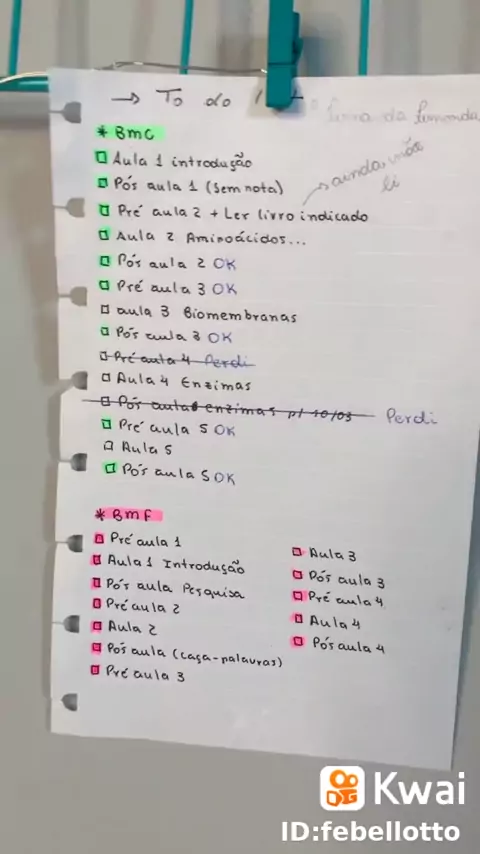 → To do
* BMC
Aula 1 introdução
Pós aula 1 (sem nota)
ainda não li
Pré aula 2 + Ler livro indicado
Aula 2 Aminoácidos...
Pós aula 2 OK
Pré aula 3 OK
aula 3 Biomembranas
Pós aula 3 OK
Pré aula 4 Perdi
Aula 4 Enzimas
Pós aula enzimas p/ 10/03 Perdi
Pré aula 5 OK
Aula 5
Pós aula 5 OK
* BMF
Pré aula 1
Aula 1 Introdução
Pós aula Pesquisa
Pré aula 2
Aula 2
Pós aula (caça-palavras)
Pré aula 3
Aula 3
Pós aula 3
Pré aula 4
Aula 4
Pós aula 4
Kwai
ID:febellotto